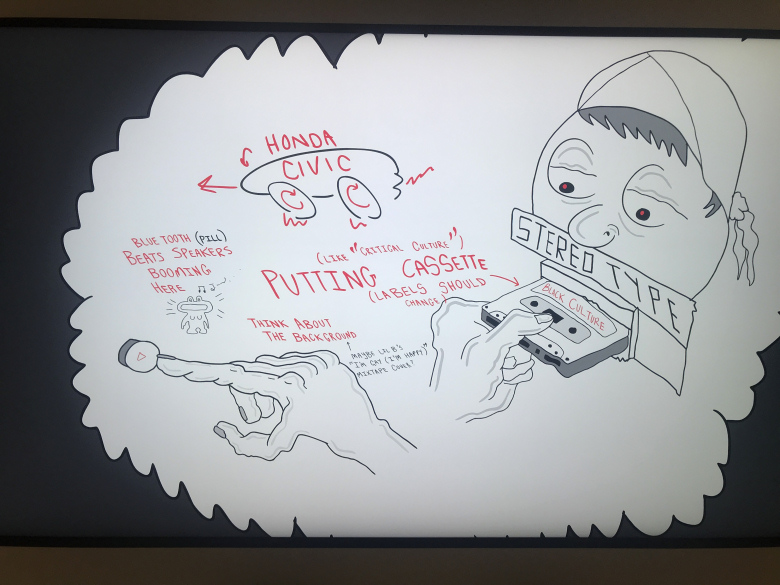 HONDA
CIVIC
BLUE TOOTH (PILL)
BEATS SPEAKERS
BOOMING
HERE
(LIKE "CRITICAL CULTURE")
PUTTING CASSETTE
(LABELS SHOULD
CHANGE)
THINK ABOUT
THE BACKGROUND
MAYBE LIL B'S
"I'M GAY (I'M HAPPY)"
MIXTAPE COVER?
STEREO TYPE
BLACK CULTURE